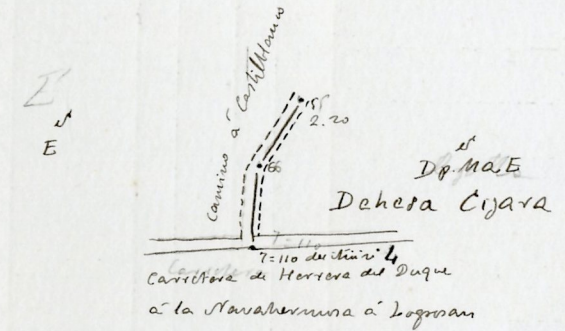 Camino á Castilblanco
155
2.20
E
166
Dp. Ma. E
Dehesa Cijara
7=110
Carretera de Herrera del Duque
á la Navahermosa á Logrosan